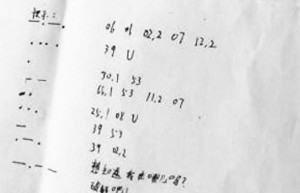 提示:
06 01 02.2 07 12.2
39 U
30.1 53
66.1 53 11.2 07
25.1 08 U
39 53
39 02.2
想知道我在哪儿吗?
请解吧!